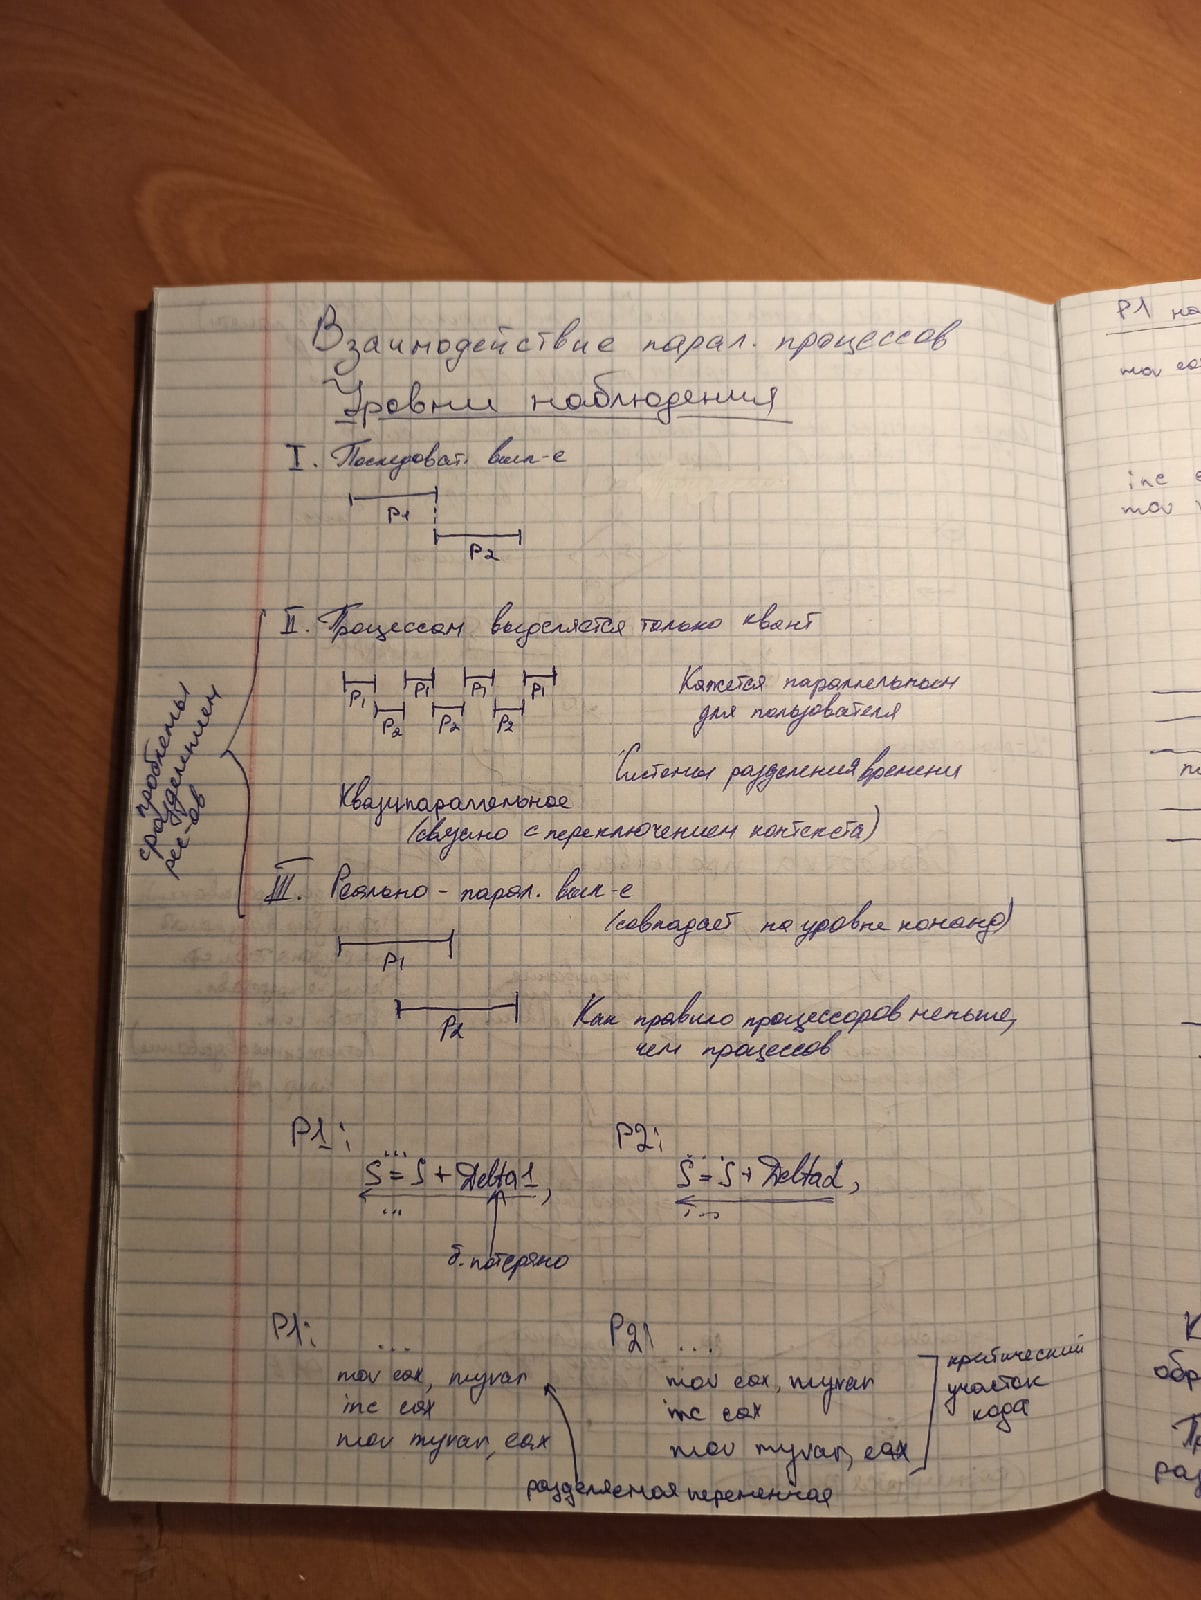 Взаимодействие парал. процессов
Уровни наблюдения
I. Последоват. вып-е
P1
P2
II. Процессам выделяется только квант
P1 P1 P1 P1
P2 P2 P2
Кажется параллельным
для пользователя
Системы разделения времени
Квазипараллельное
(связано с переключением контекста)
проблемы
с разделением
рес-ов
III. Реально - парал. вып-е
(совпадает на уровне команд)
P1
P2
Как правило процессоров меньше,
чем процессов
P1:
P2:
...
S = S + Delta1,
S = S + Delta2,
...
б. потеряно
P1:
P2:
...
mov eax, myvar
inc eax
mov myvar, eax
...
mov eax, myvar
inc eax
mov myvar, eax
критический
участок
кода
разделяемая переменная
P1 на
mov ea
inc e
mov
К
обр
раз